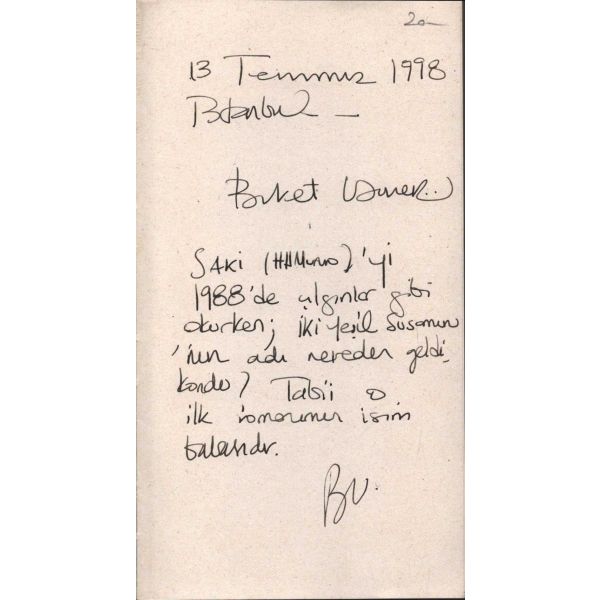 20-
13 Temmuz 1998
İstanbul -
Buket Uzuner..
SAKİ (HHMunro)'yi
1988'de çılgınlar gibi
okurken; İki Yeşil Susamuru
'nun adı nereden geldi,
kondu? Tabii o
ilk romanımın isim
babasıdır.
BU.